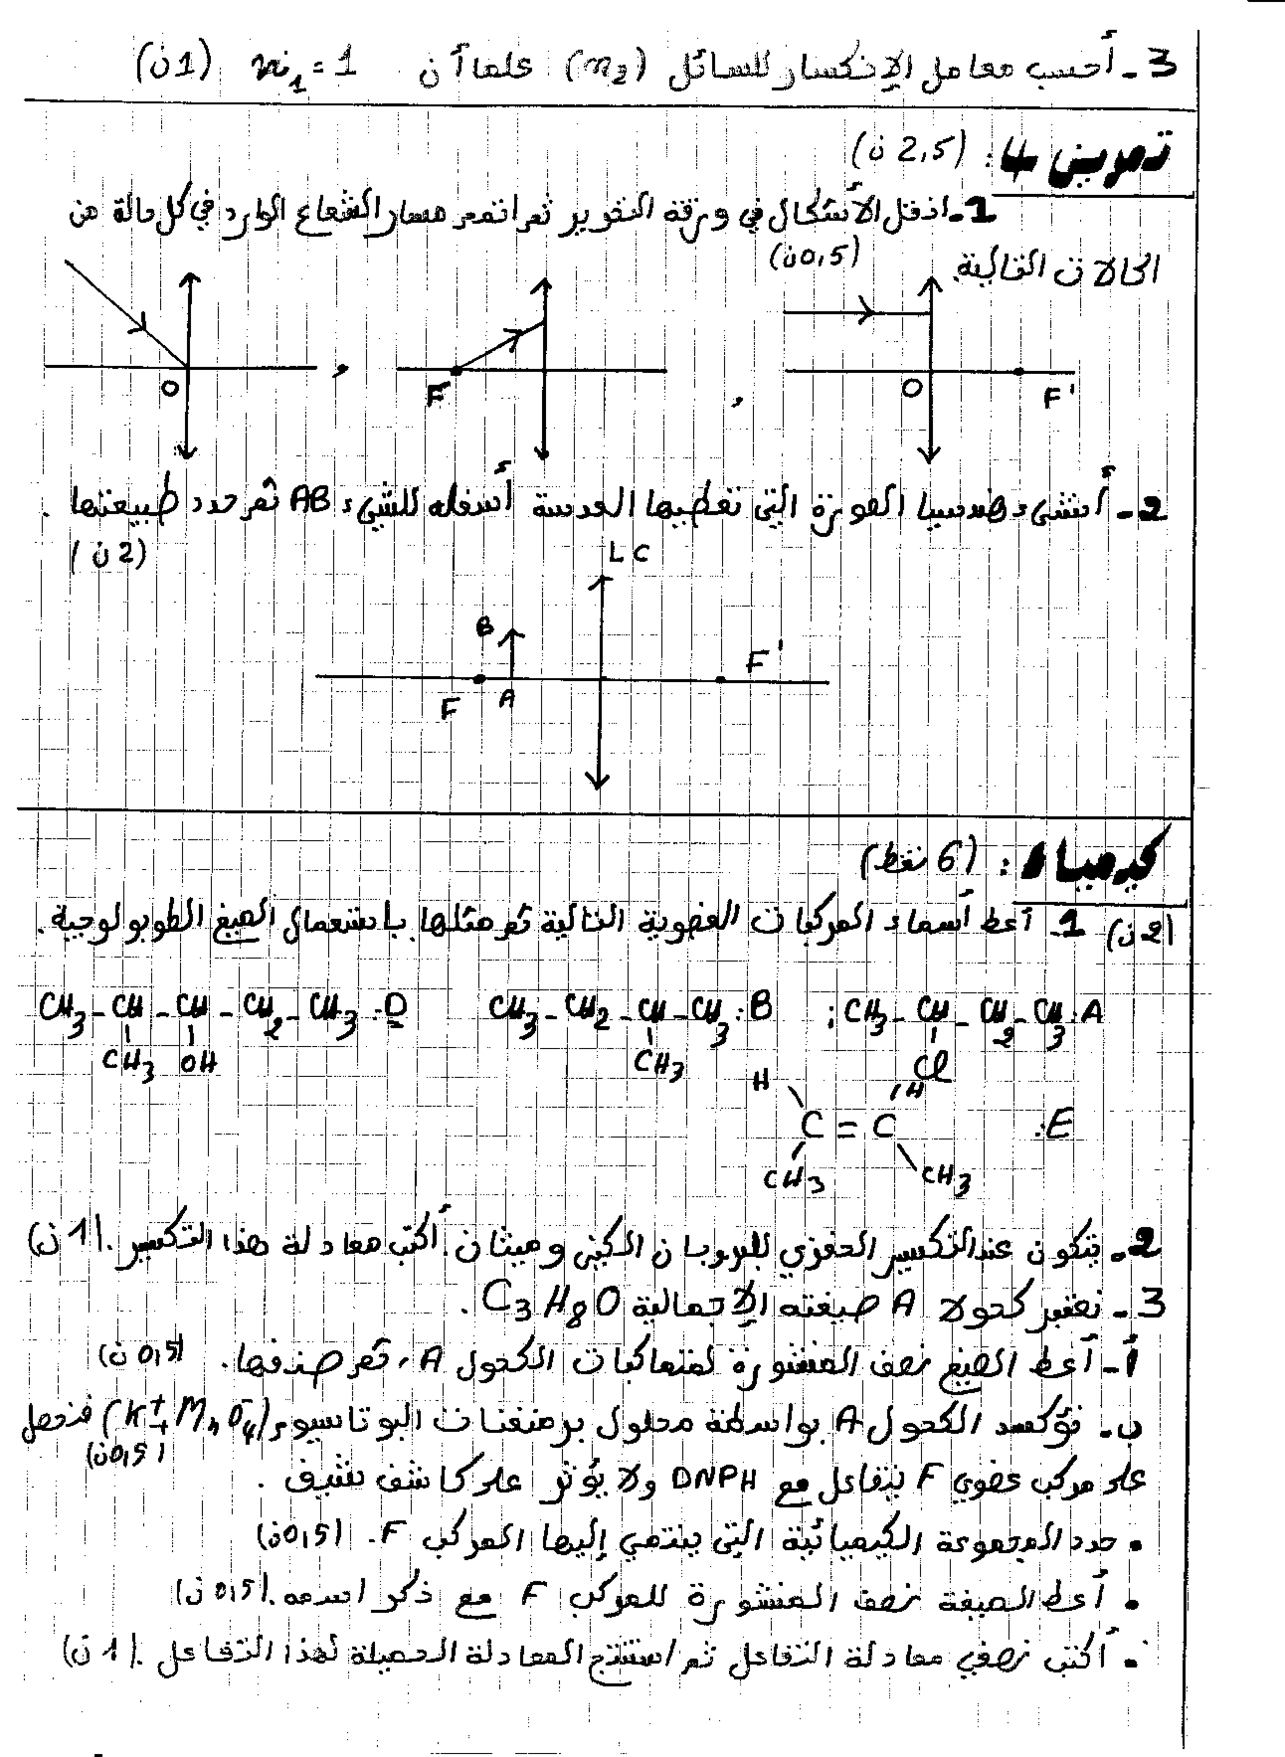 3 - أحسب معامل الإنكسار للسائل (n₂) علما أن n₁ = 1 (1ن)
تمرين 4 : (2,5 ن)
1- انقل الأشكال في ورقة التحرير ثم اتمم مسار الشعاع الوارد في كل حالة من
الحالات التالية. (0,5ن)
O , F , O F'
2- أنشئ هندسيا الصورة التي تعطيها العدسة أسفله للشيء AB ثم حدد طبيعتها .
(2ن)
LC
B
F A F'
كيمياء : (6 نقط)
(2ن) 1. أعط أسماء المركبات العضوية التالية ثم مثلها باستعمال الصيغ الطوبولوجية .
A: CH₃-CH-CH₂-CH₃ ; B: CH₃-CH₂-CH-CH₃ D: CH₃-CH-CH-CH₂-CH₃
Cl CH₃ CH₃ OH
E: H H
C = C
CH₃ CH₃
2- يتكون عند التكسير الحفزي للبروبان الكين وميثان. أكتب معادلة هذا التكسير. (1ن)
3- نعتبر كحولا A صيغته الإجمالية C₃H₈O .
أ- أعط الصيغ نصف المنشورة لمتماكبات الكحول A، ثم صنفها. (0,5ن)
ب- نؤكسد الكحول A بواسطة محلول برمنغنات البوتاسيوم (K⁺+MnO₄⁻) فنحصل
على مركب عضوي F يتفاعل مع DNPH ولا يؤثر على كاشف شيف . (0,5ن)
• حدد المجموعة الكيميائية التي ينتمي إليها المركب F. (0,5ن)
• أعط الصيغة نصف المنشورة للمركب F مع ذكر اسمه. (0,5ن)
• أكتب نصفي معادلة التفاعل ثم استنتج المعادلة الحصيلة لهذا التفاعل. (1ن)